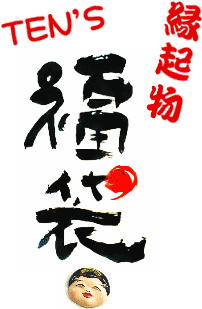 TEN'S
縁起物
福袋